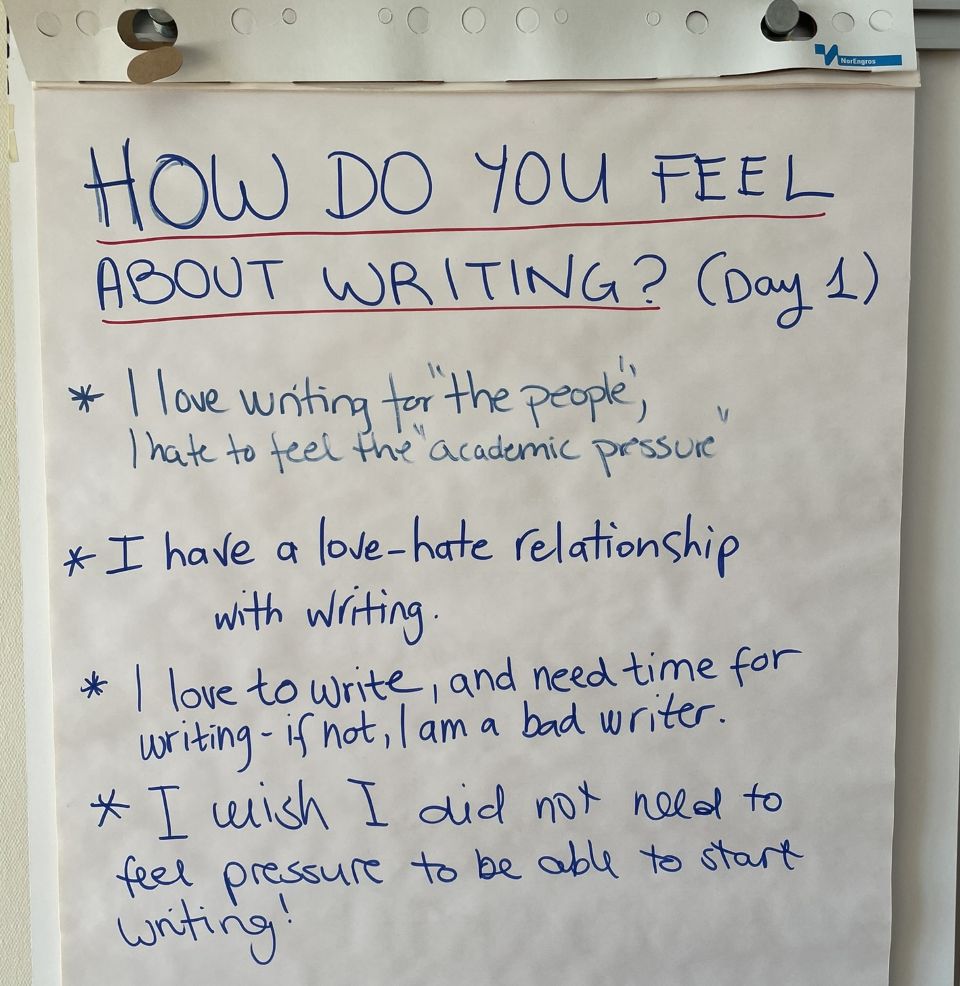 NorEngros
HOW DO YOU FEEL
ABOUT WRITING? (Day 1)
* I love writing for "the people",
I hate to feel the "academic pressure"
* I have a love-hate relationship
with writing.
* I love to write, and need time for
writing - if not, I am a bad writer.
* I wish I did not need to
feel pressure to be able to start
writing!